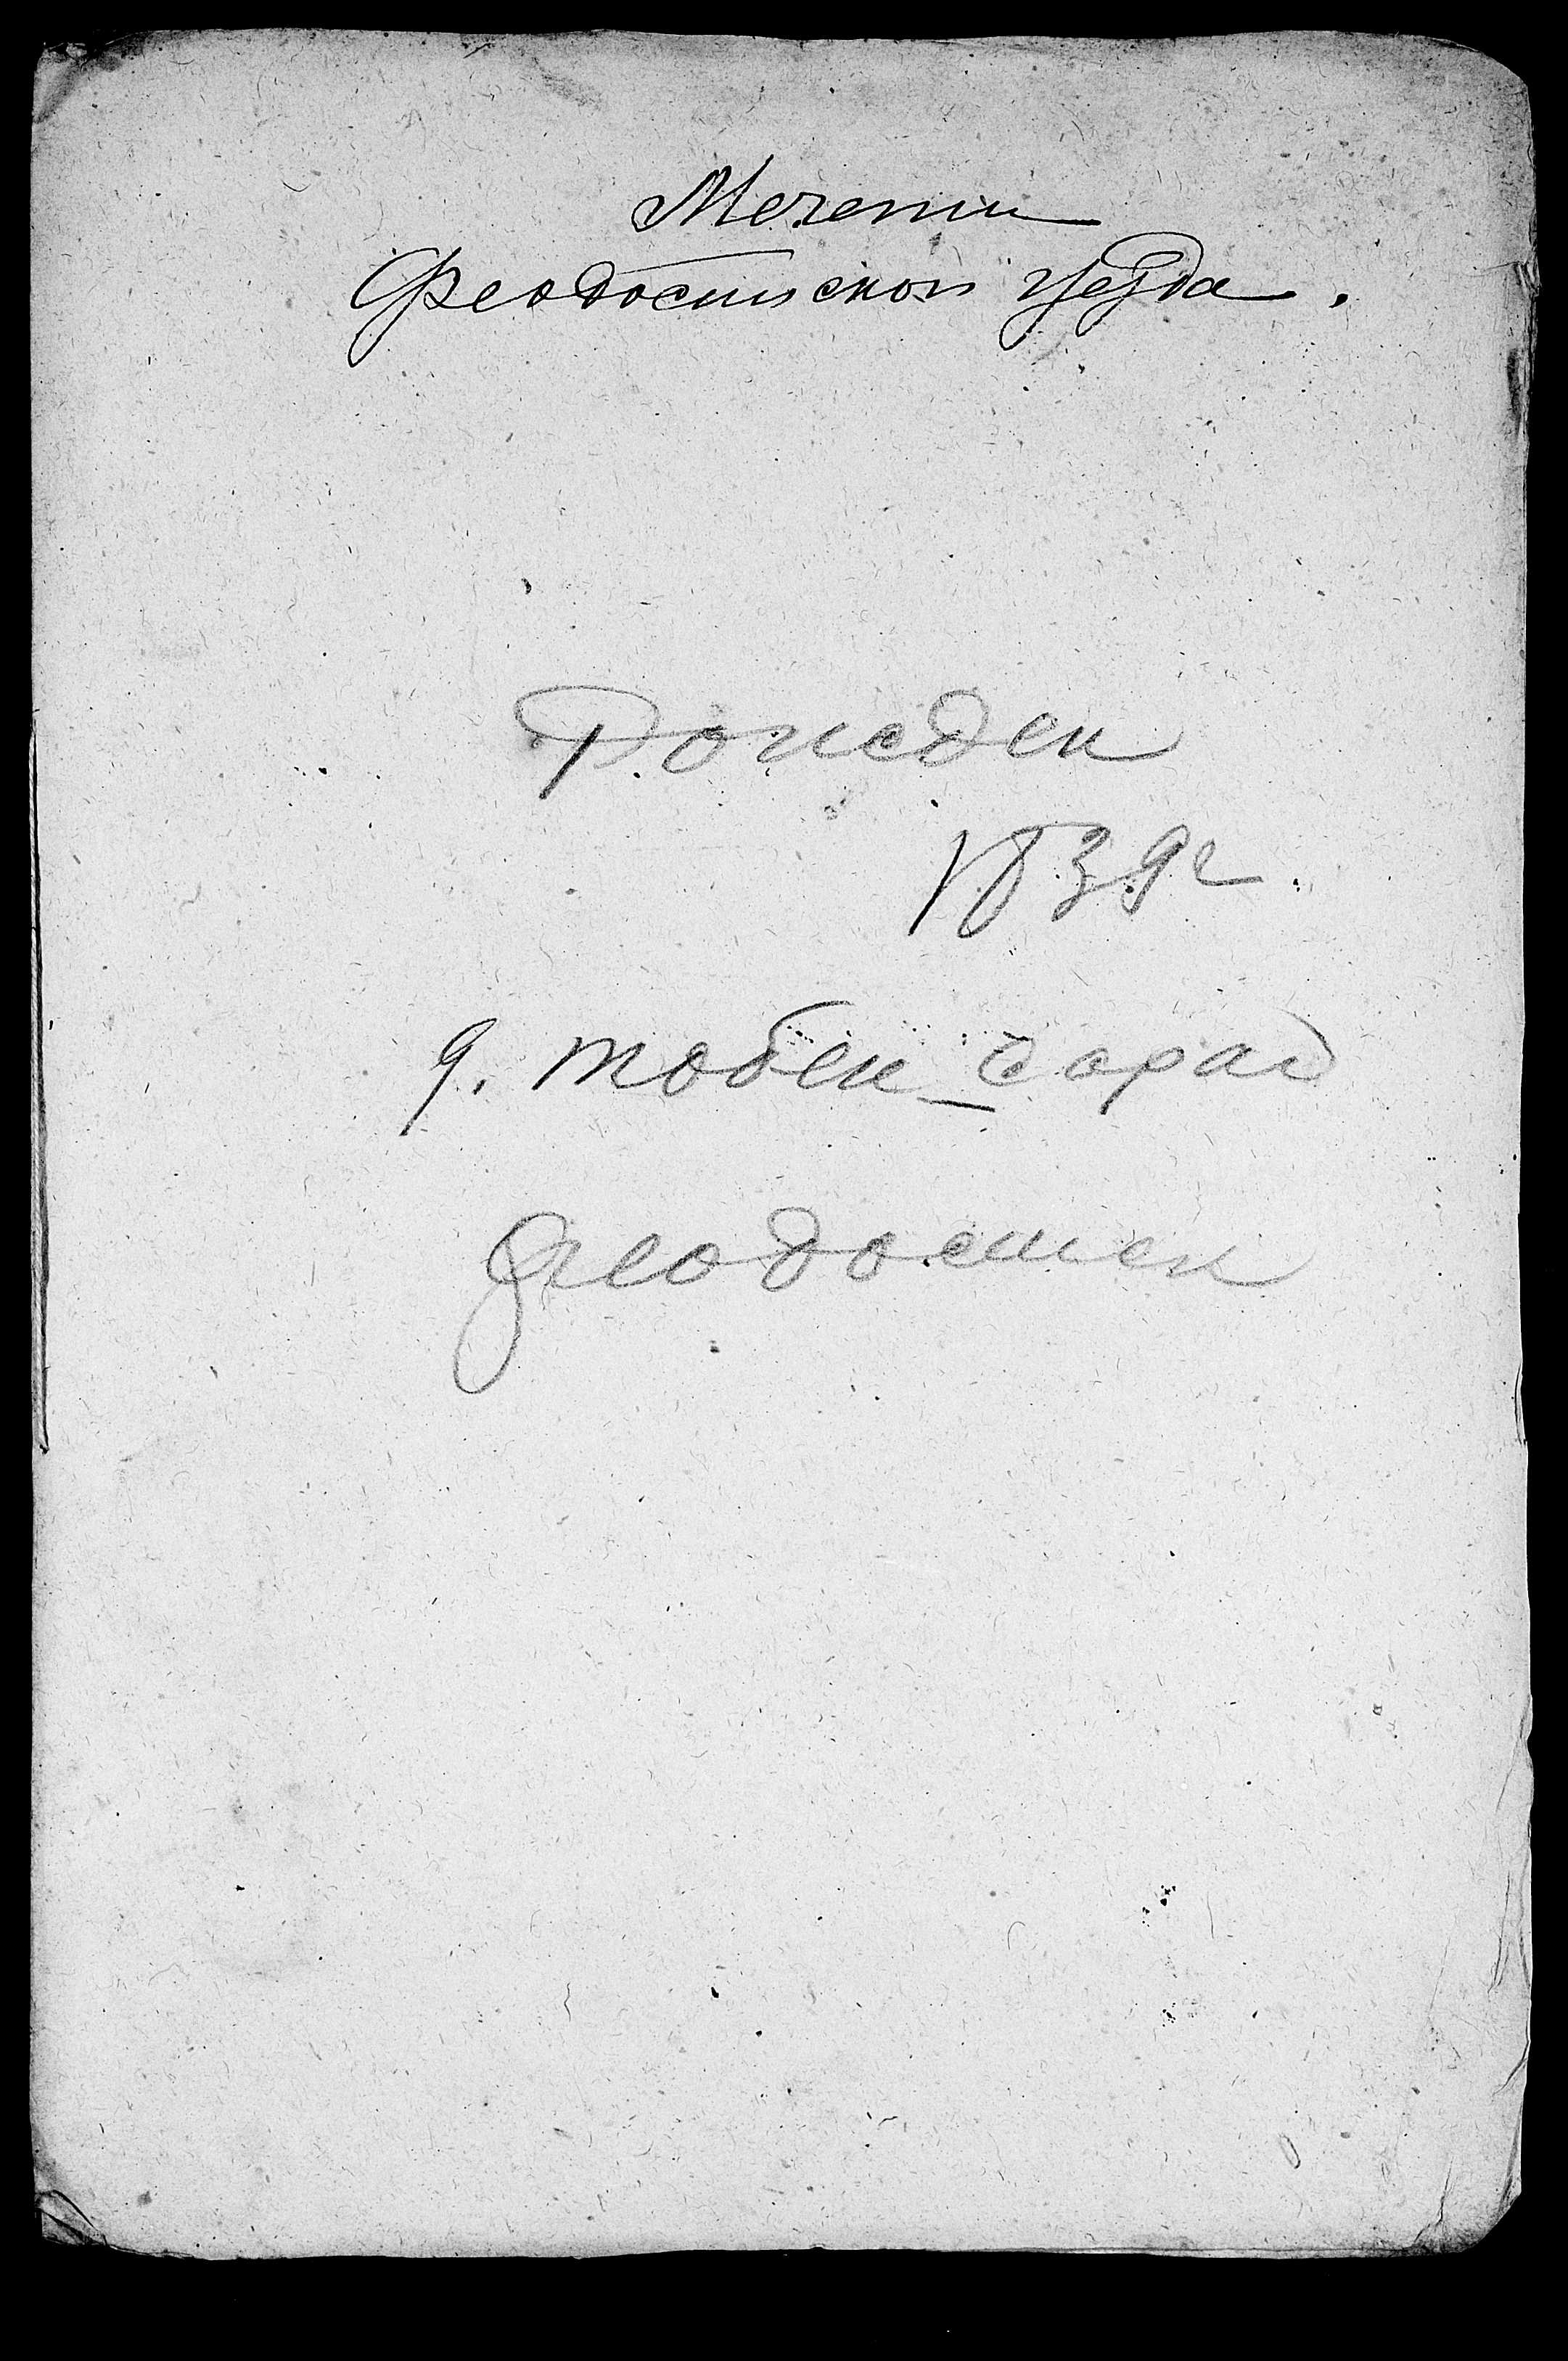 Мечети
Феодосийскои уезда.
Рожден
1839г.
д. Тобен-Сарай
Феодосиск